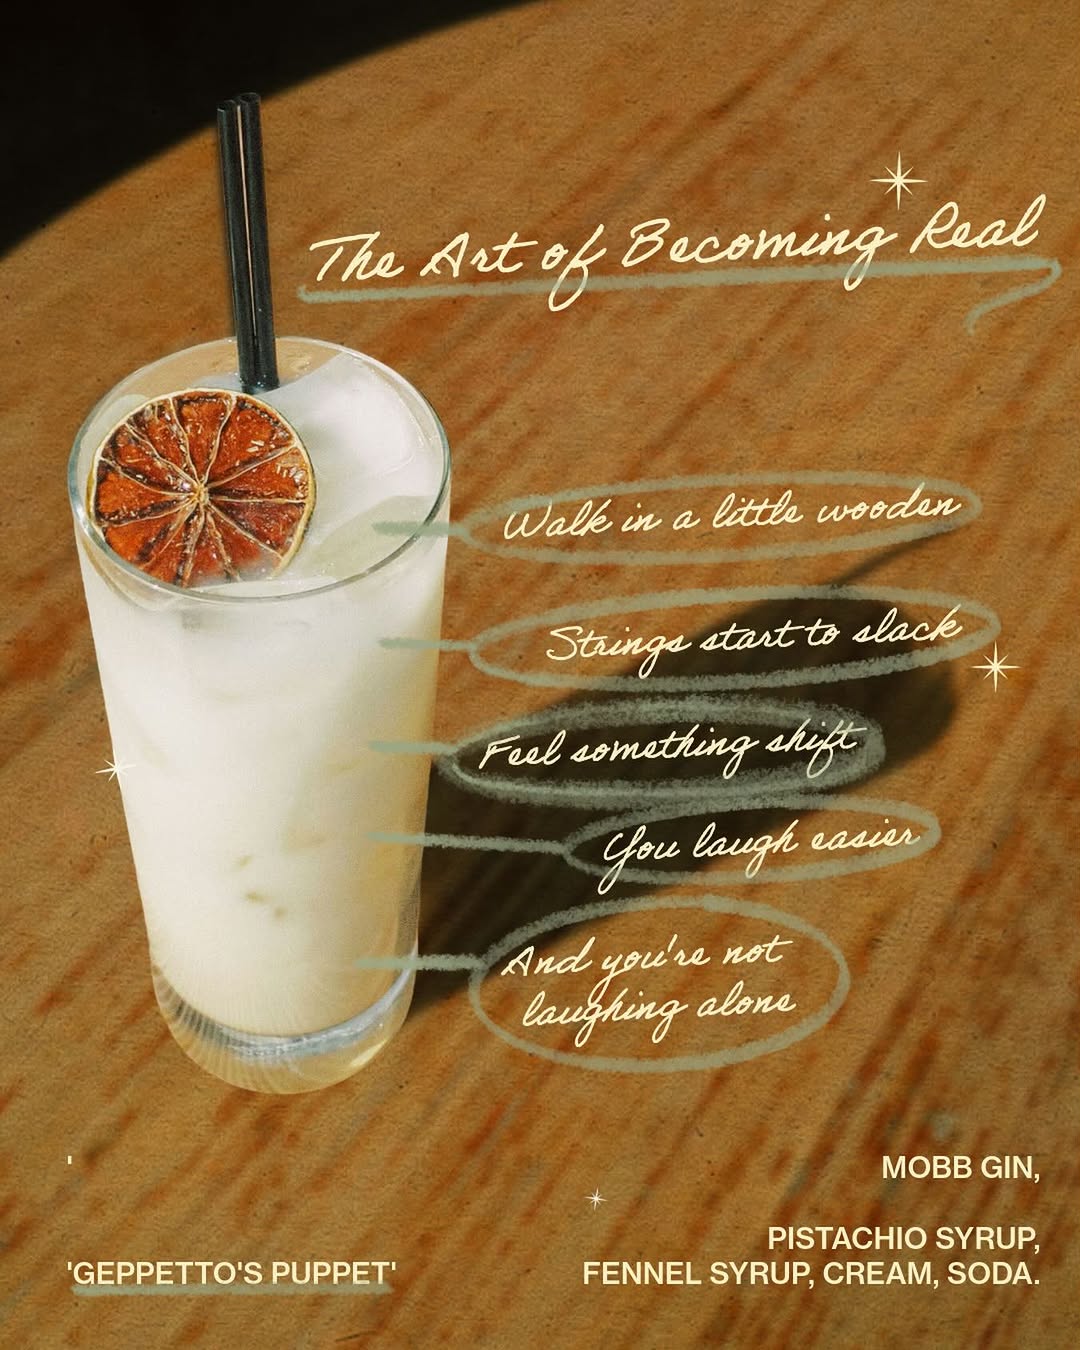 The Art of Becoming Real
Walk in a little wooden
Strings start to slack
Feel something shift
You laugh easier
And you're not
laughing alone
'
MOBB GIN,
PISTACHIO SYRUP,
'GEPPETTO'S PUPPET'
FENNEL SYRUP, CREAM, SODA.